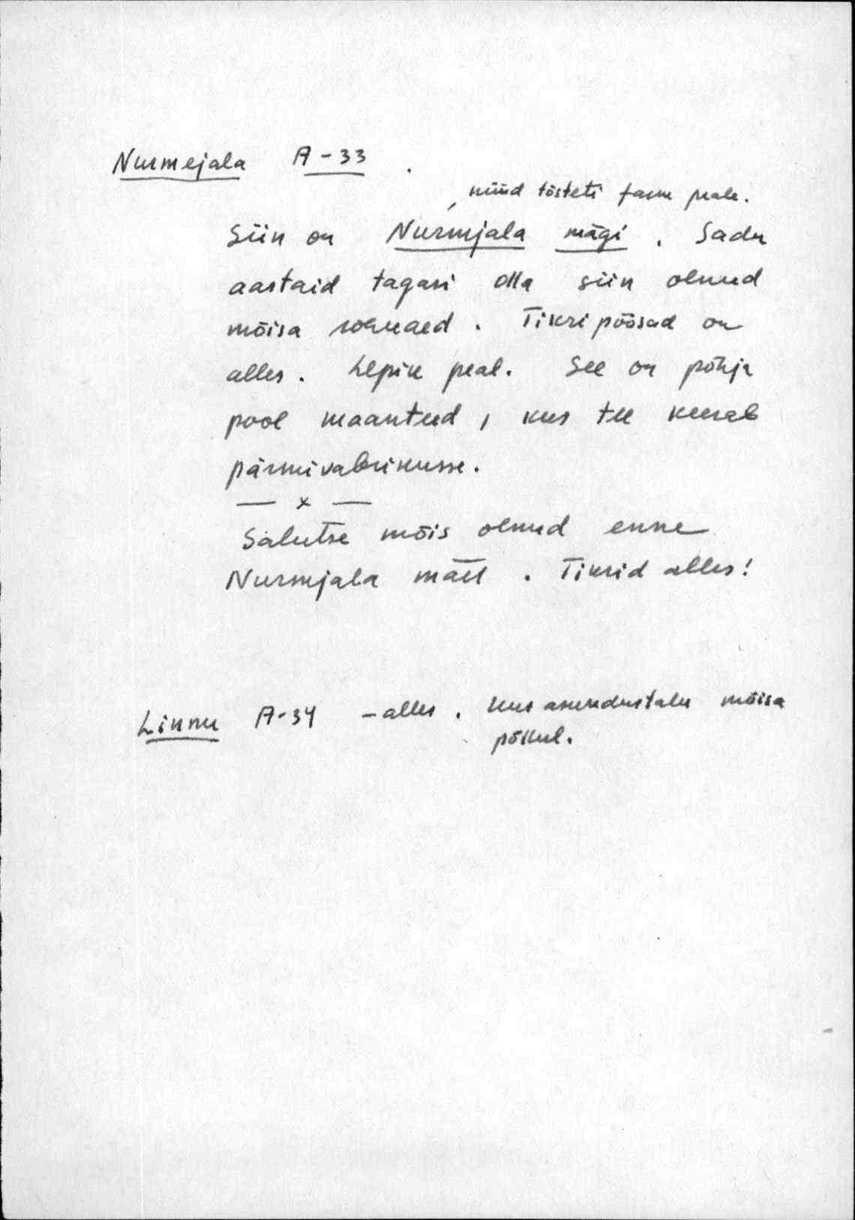 Nurmejala A-33.
, nüüd tõsteti farm peale.
Siin on Nurmjala mägi. Sadu
aastaid tagasi olla siin olnud
mõisa roguaed. Tikripõõsad on
alles. Lepik peal. See on põhja
pool maanteed, kus tee keerab
pärmivabrikusse.
— x —
Salutse mõis olnud enne
Nurmjala mäel. Tikrid alles!
Linnu A-34 – alles. Uus asundustalu mõisa
põllul.